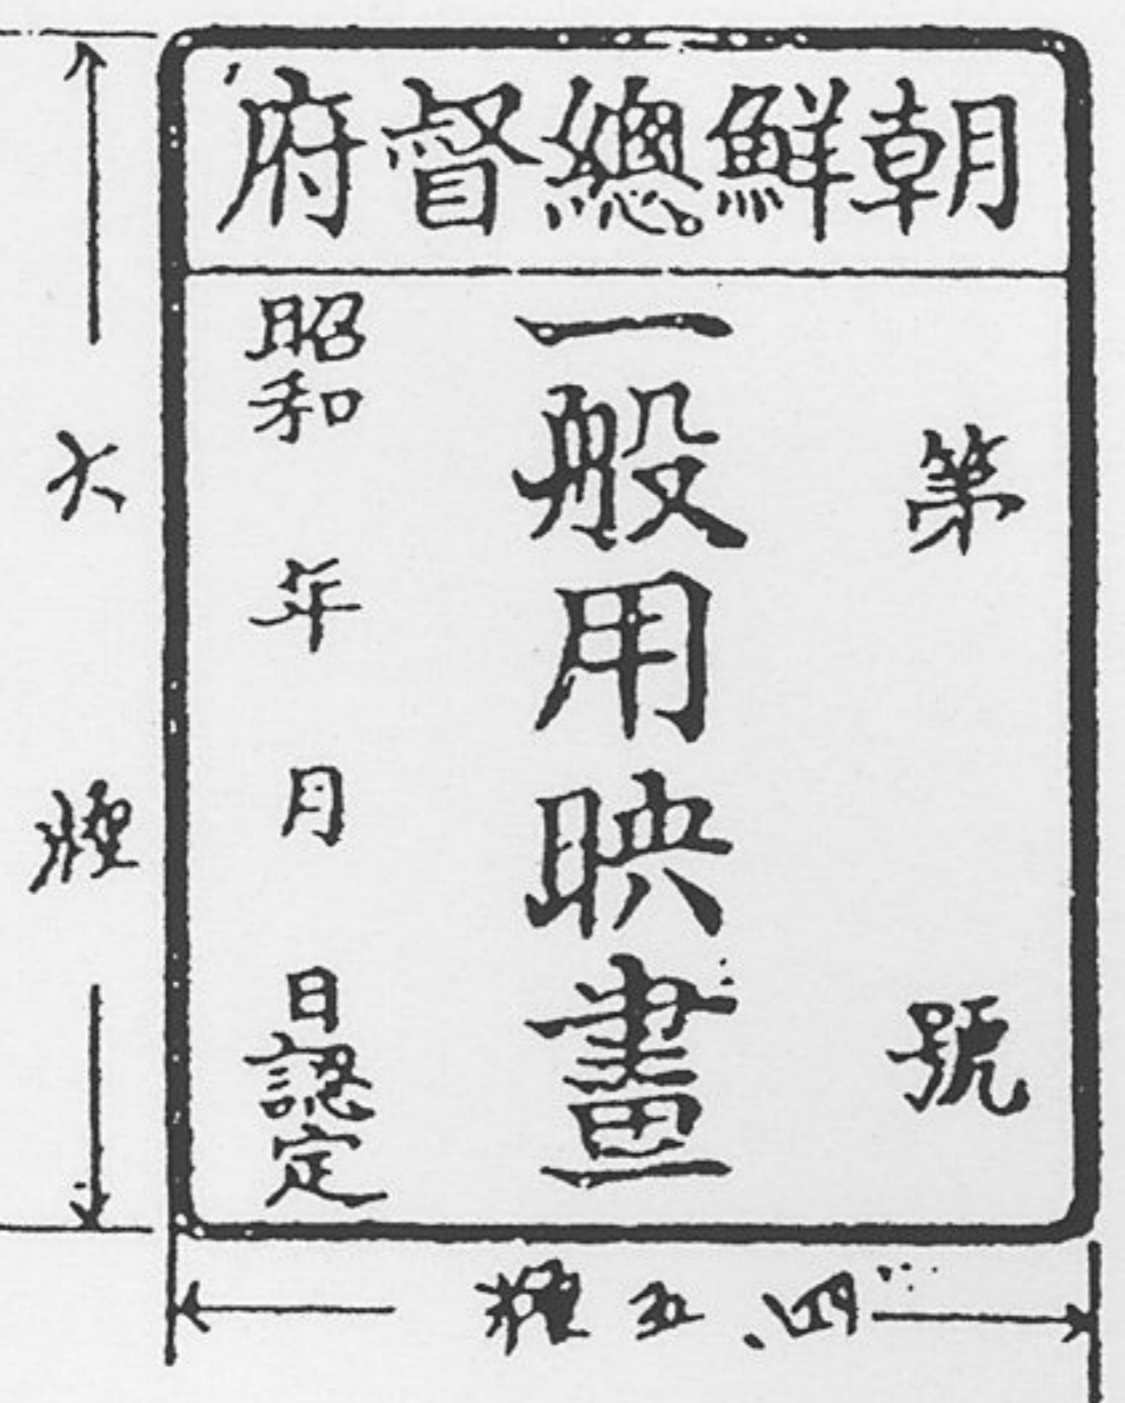 朝鮮總督府
第 號
一般用映畫
昭和 年 月 日認定
六糎
四、五糎